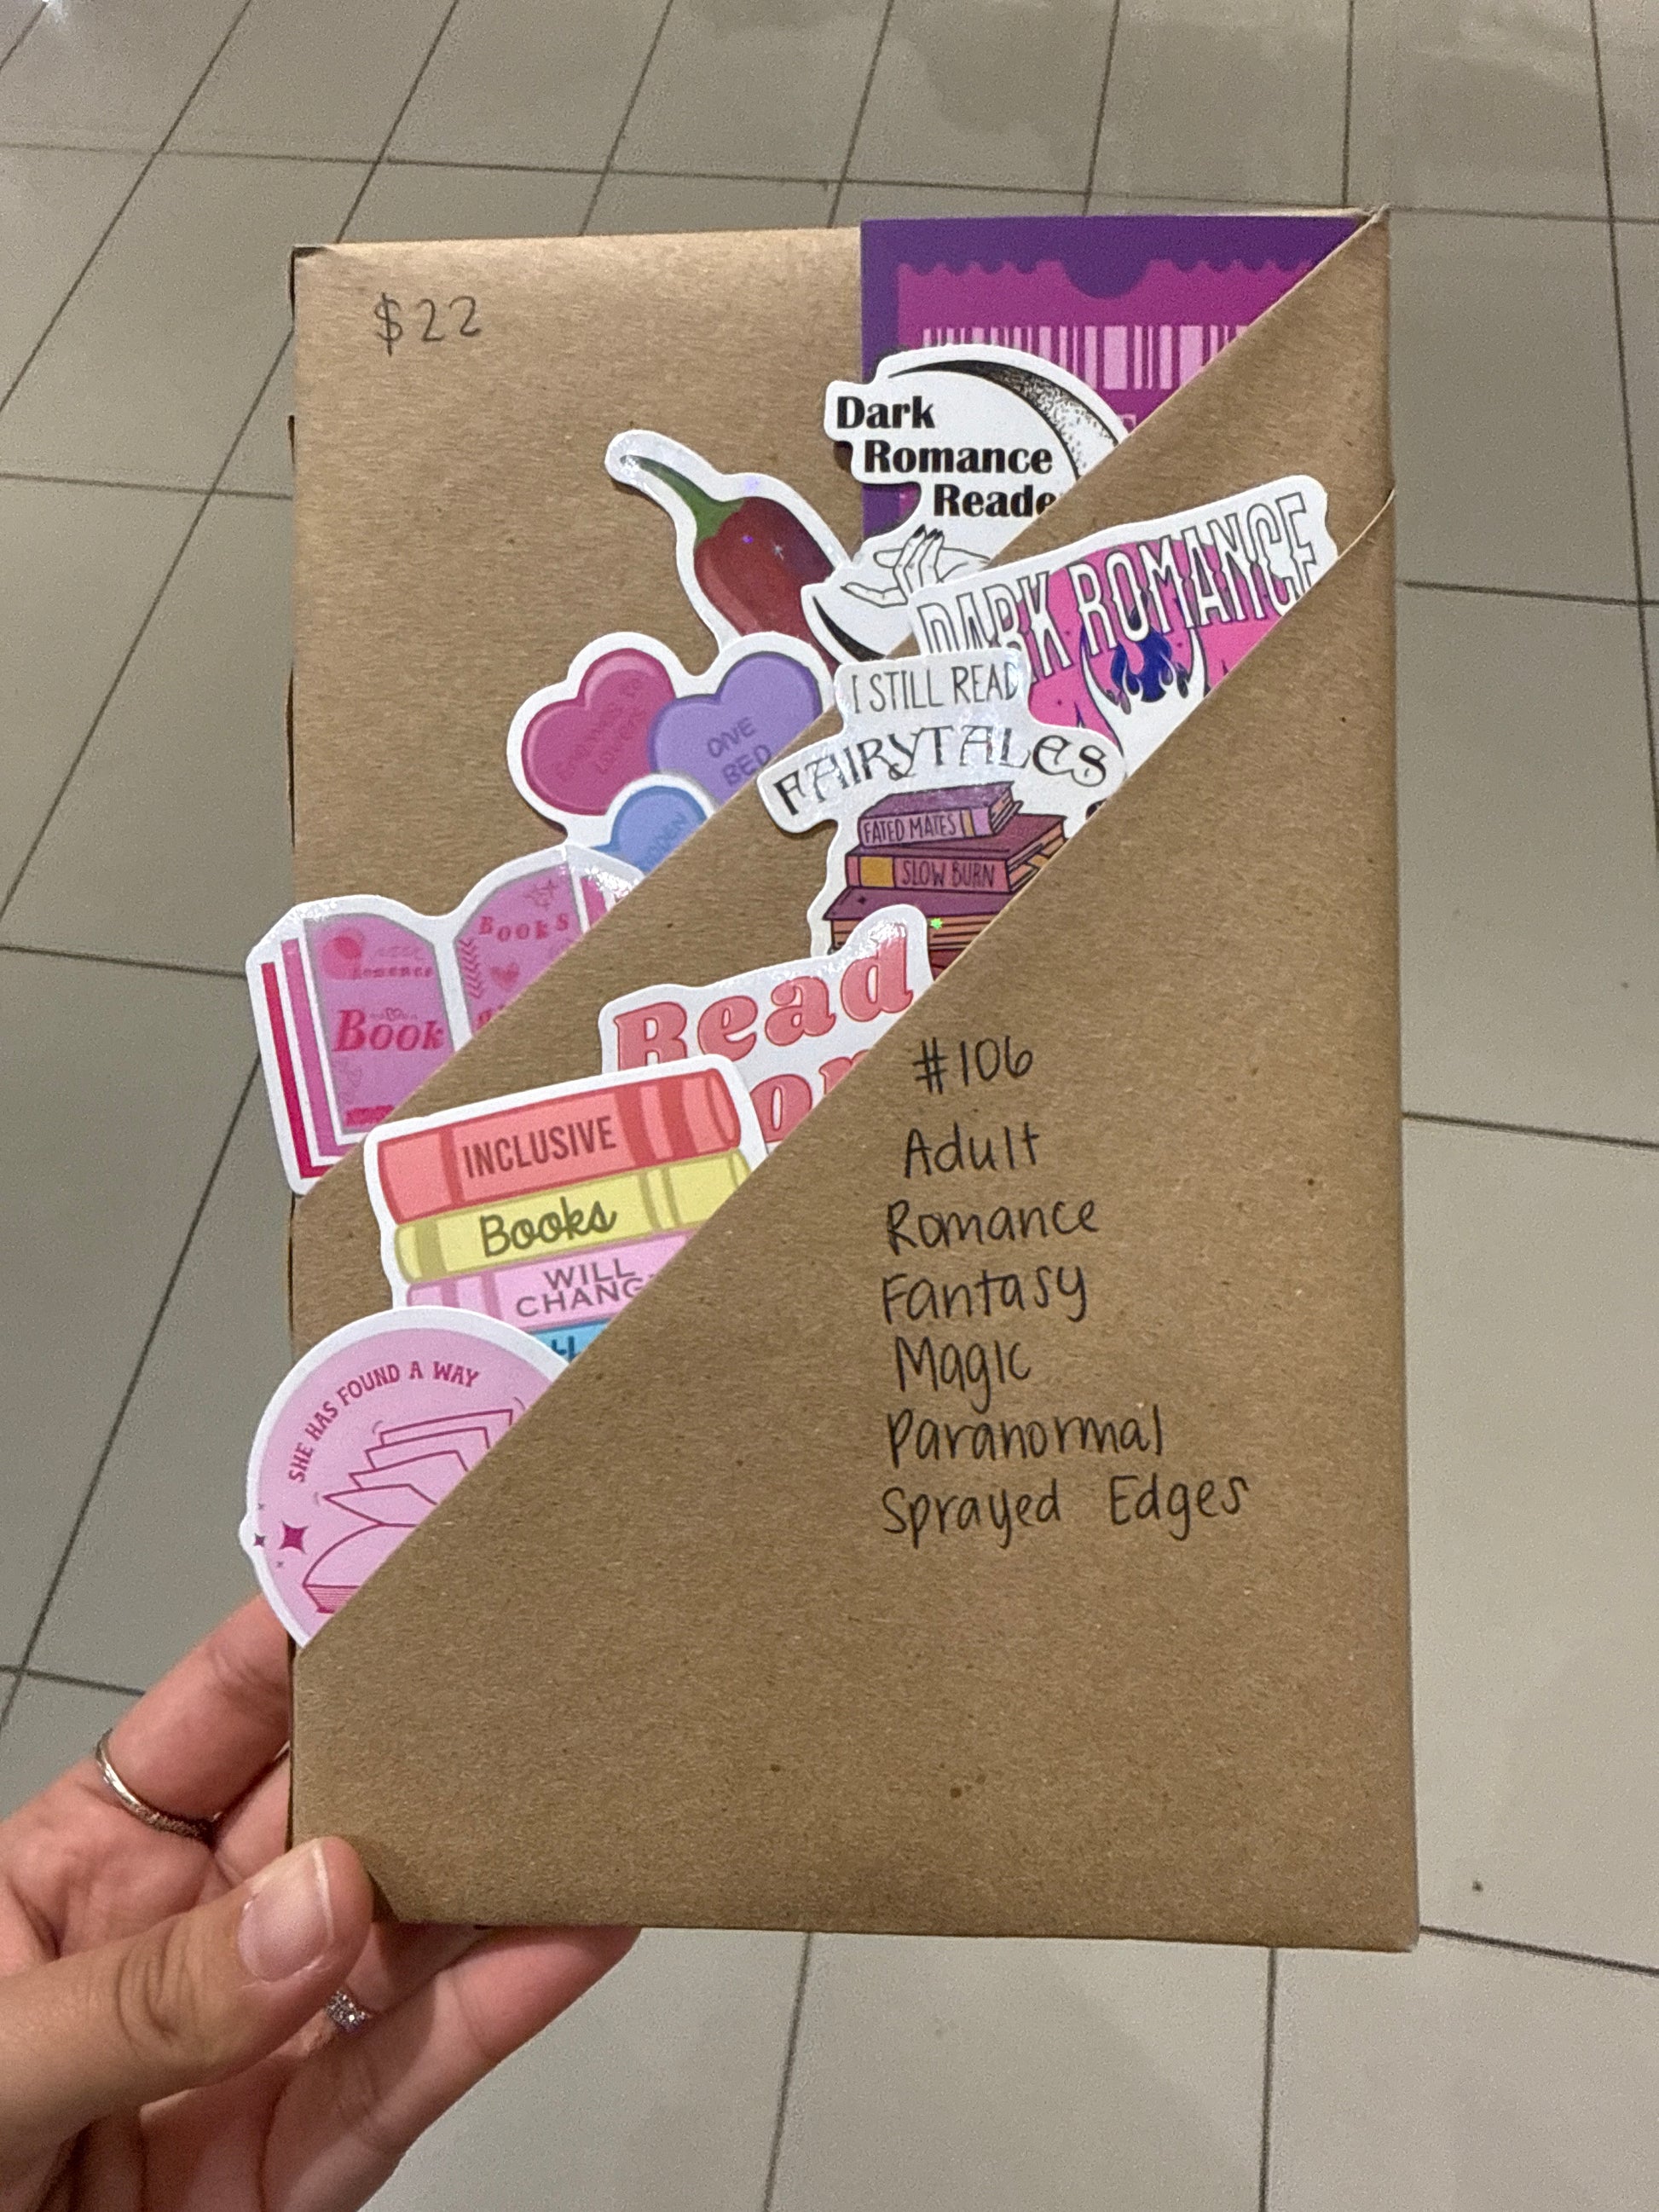 $22
Dark
Romance
Reade
DARK ROMANCE
Enemies to
Lovers
ONE
BED
I STILL READ
FAIRYTALES
FATED MATES
SLOW BURN
Romance
Book
Books
Read
INCLUSIVE
Books
WILL
CHANG
SHE HAS FOUND A WAY
#106
Adult
Romance
Fantasy
Magic
Paranormal
Sprayed Edges